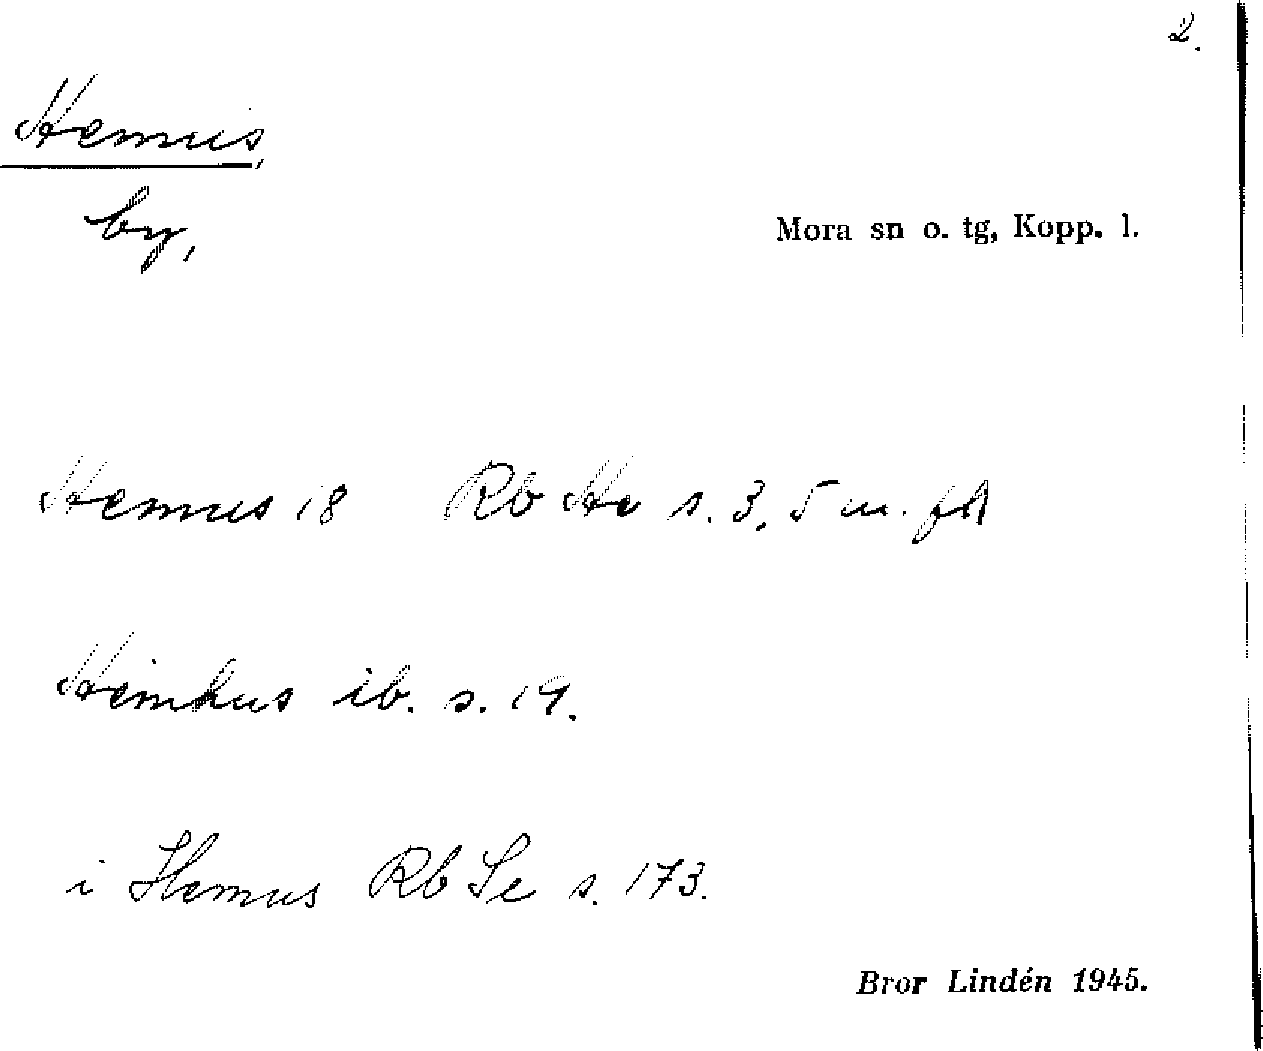 2.
Hemus,
by,
Mora sn o. tg, Kopp. l.
Hemus 18 Rb He s. 3, 5 m. fl
Hemhus ib. s. 19.
i Hemus Rb Se s. 173.
Bror Lindén 1945.